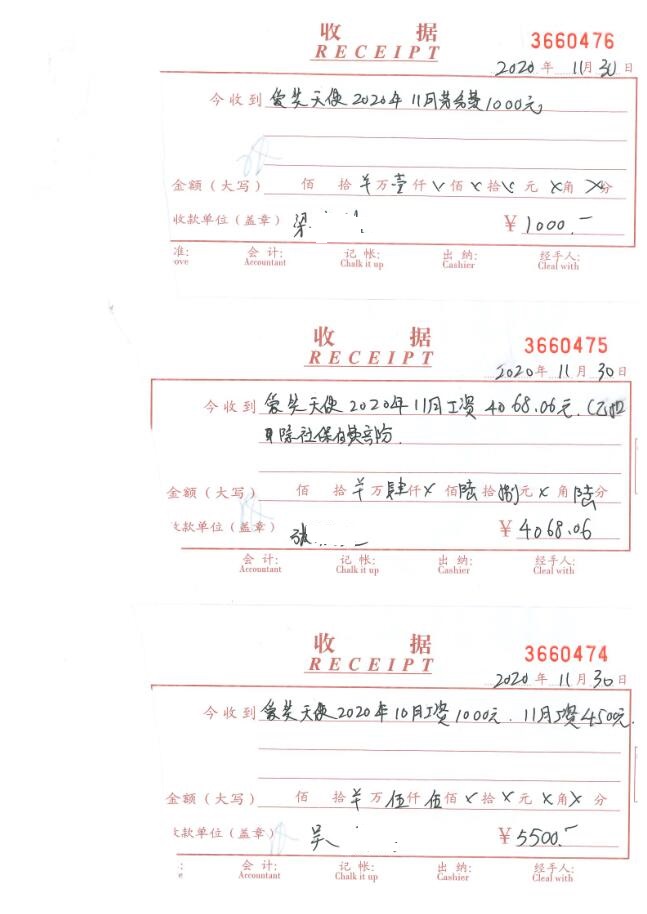 收 据
RECEIPT
3660476
2020 年 11 月 30 日
今收到 爱笑天使2020年11月劳务费1000元
金额（大写） 佰 拾 羊 万 壹 仟 佰 拾 元 角 分
收款单位（盖章） 梁 ￥ 1000.-
准: 会 计: 记 帐: 出 纳: 经手人:
ove Accountant Chalk it up Cashier Cleal with
收 据
RECEIPT
3660475
2020 年 11 月 30 日
今收到 爱笑天使2020年11月工资4068.06元.（已
扣除社保自费部份
金额（大写） 佰 拾 羊 万 肆 仟 × 佰 陆 拾 捌 元 × 角 陆 分
收款单位（盖章） 张 ￥ 4068.06
会 计: 记 帐: 出 纳: 经手人:
Accountant Chalk it up Cashier Cleal with
收 据
RECEIPT
3660474
2020 年 11 月 30 日
今收到 爱笑天使2020年10月工资1000元. 11月工资4500元.
金额（大写） 佰 拾 羊 万 伍 仟 伍 佰 × 拾 × 元 × 角 × 分
款单位（盖章） 吴 ￥ 5500.-
: 会 计: 记 帐: 出 纳: 经手人:
e Accountant Chalk it up Cashier Cleal with